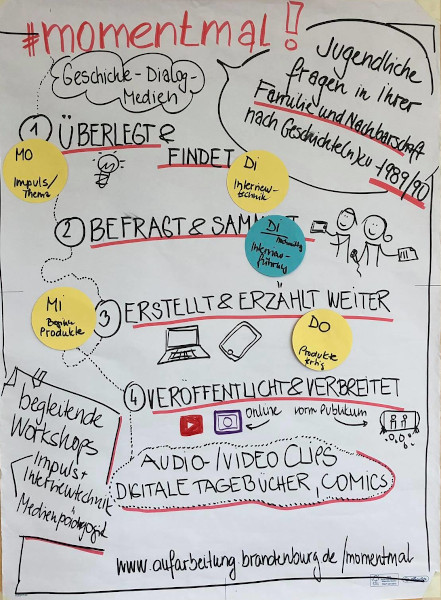 #momentmal!
Geschichte-Dialog-
Medien
Jugendliche
fragen in ihrer
Familie und Nachbarschaft
nach Geschichte(n) zu
1989/90
1 ÜBERLEGT &
FINDET
MO
Impuls/
Thema
Di
Interview-
technik
2 BEFRAGT & SAMMELT
Di
Interview-
führung
3 ERSTELLT & ERZÄHLT WEITER
Mi
Beginn
Produkte
DO
Produkte
fertig
4 VERÖFFENTLICHT & VERBREITET
online vorm Publikum
begleitende
Workshops
Impuls+
Interviewtechnik
Medienpädagogik
AUDIO-/VIDEO CLIPS
DIGITALE TAGEBÜCHER, COMICS
www.aufarbeitung.brandenburg.de/momentmal